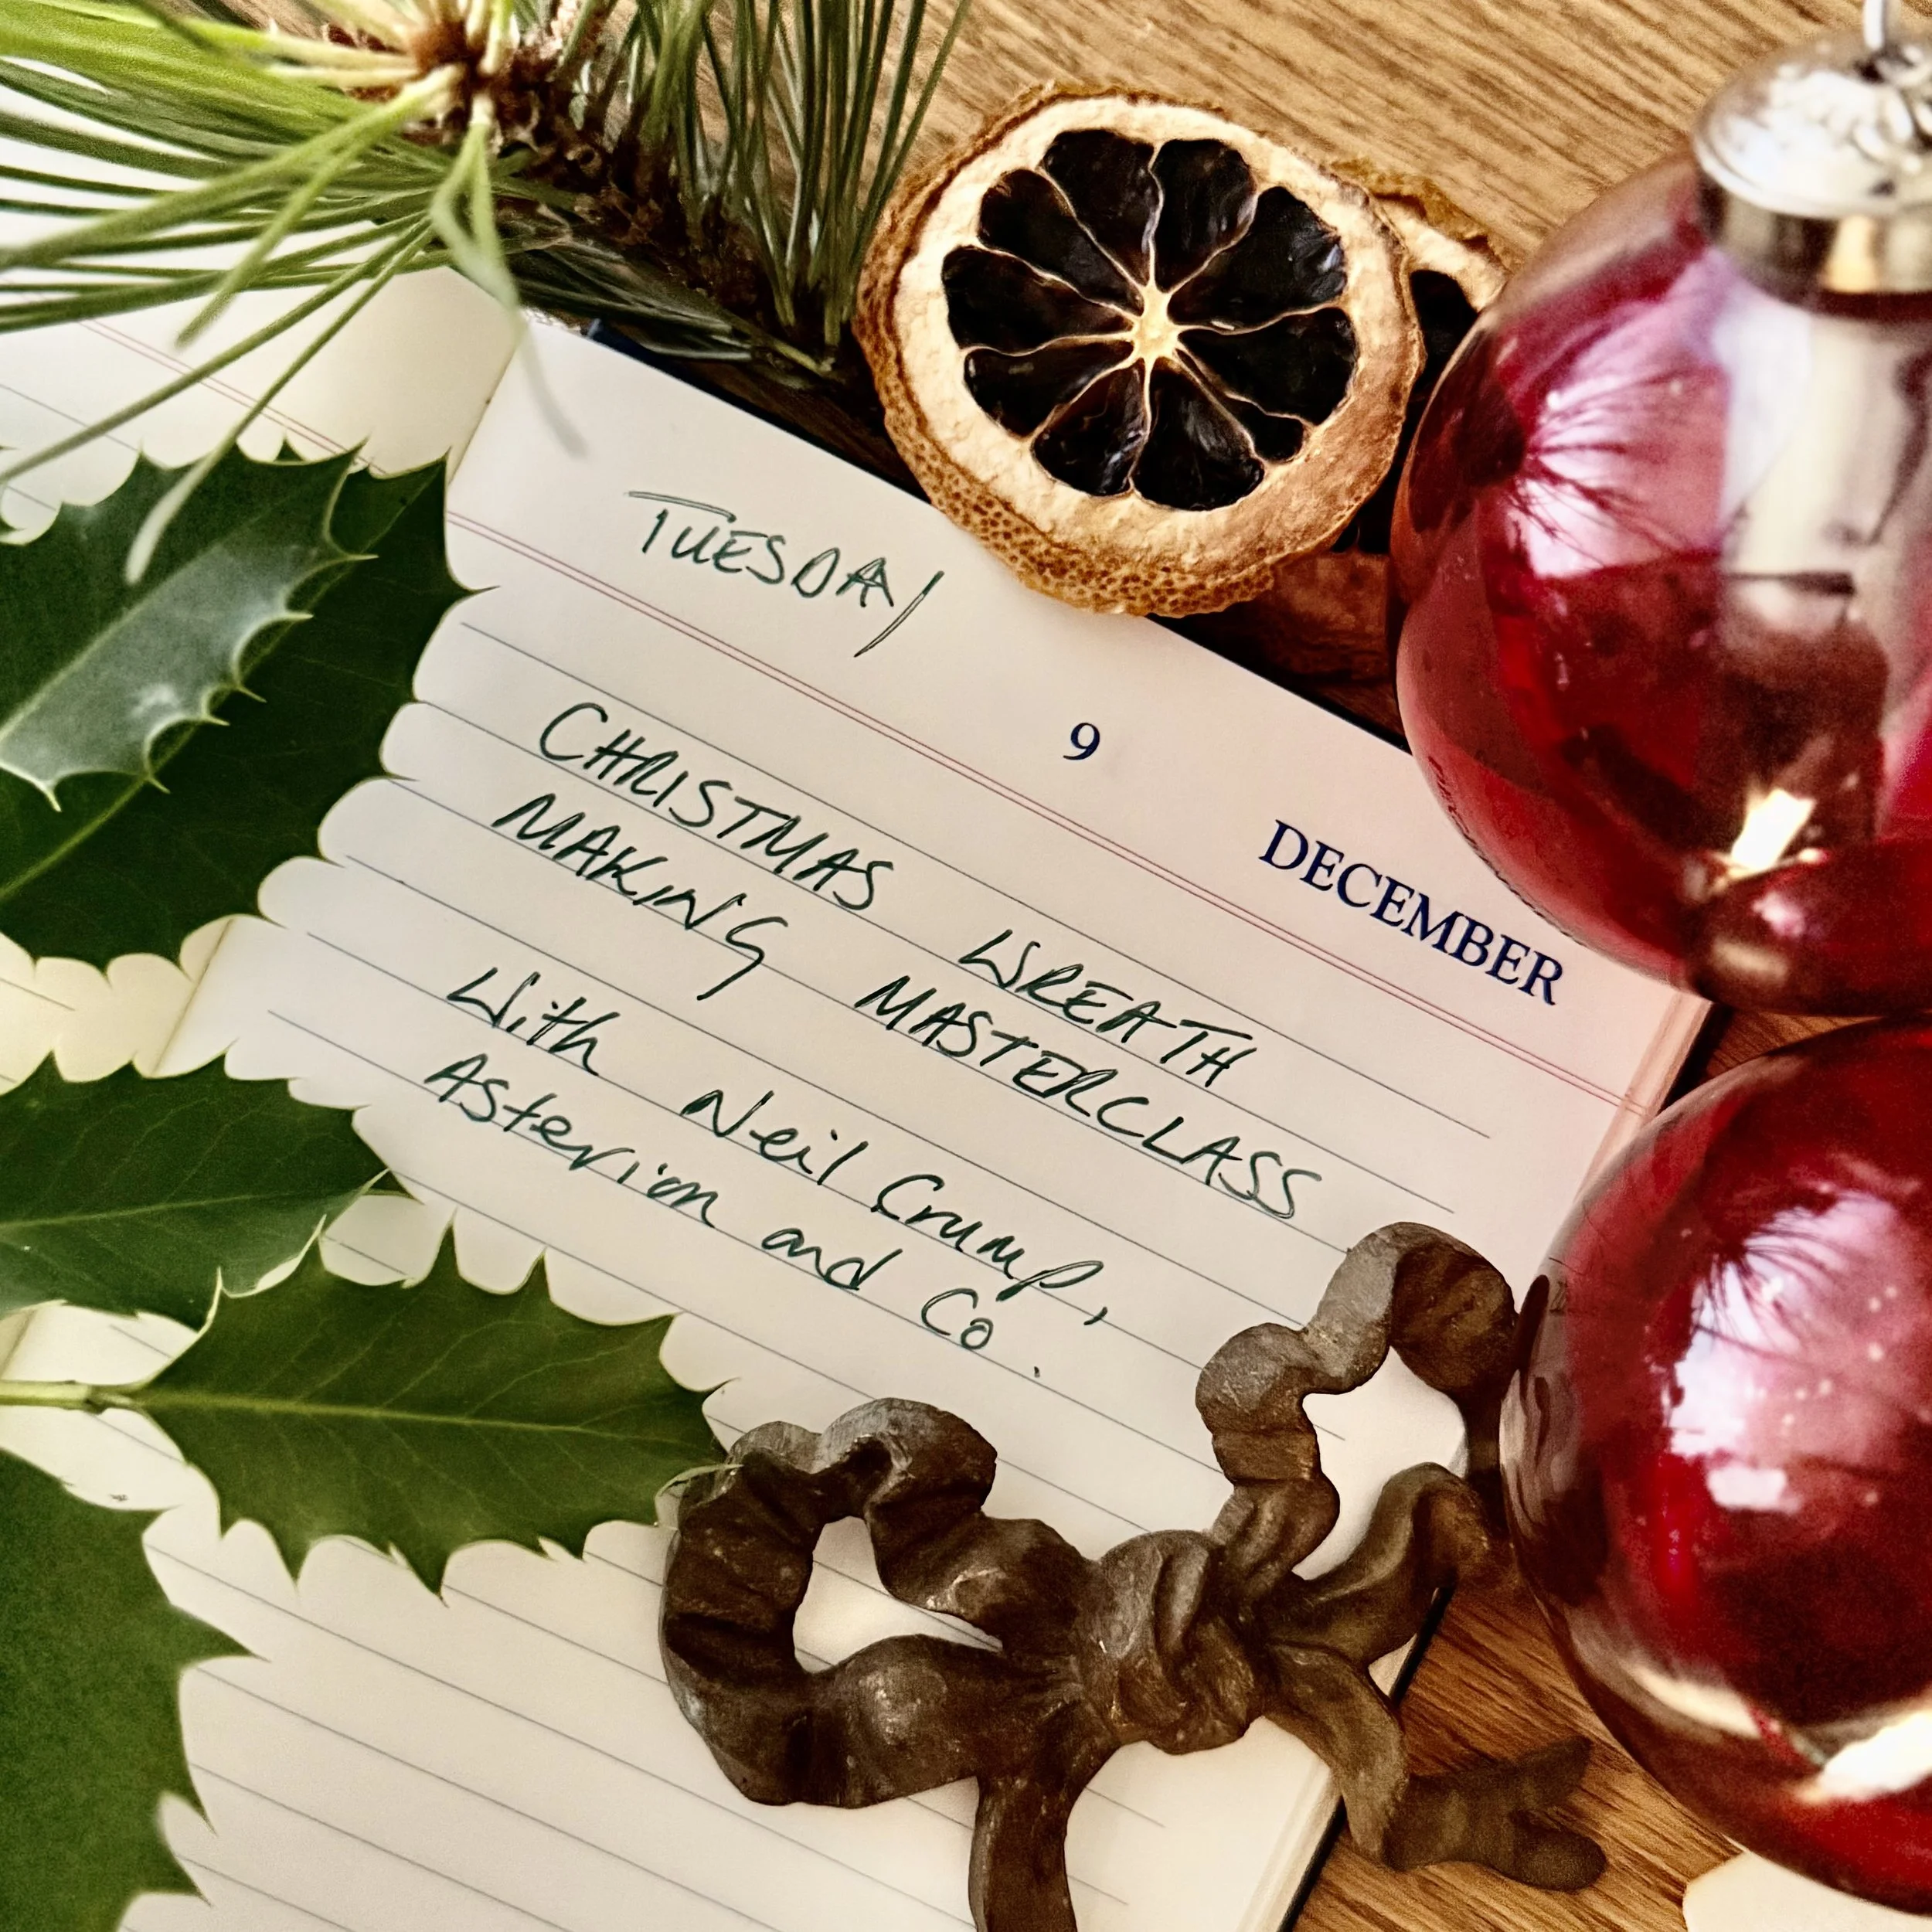 TUESDAY
9
DECEMBER
CHRISTMAS WREATH
MAKING MASTERCLASS
With Neil Crump,
Asterion and Co.